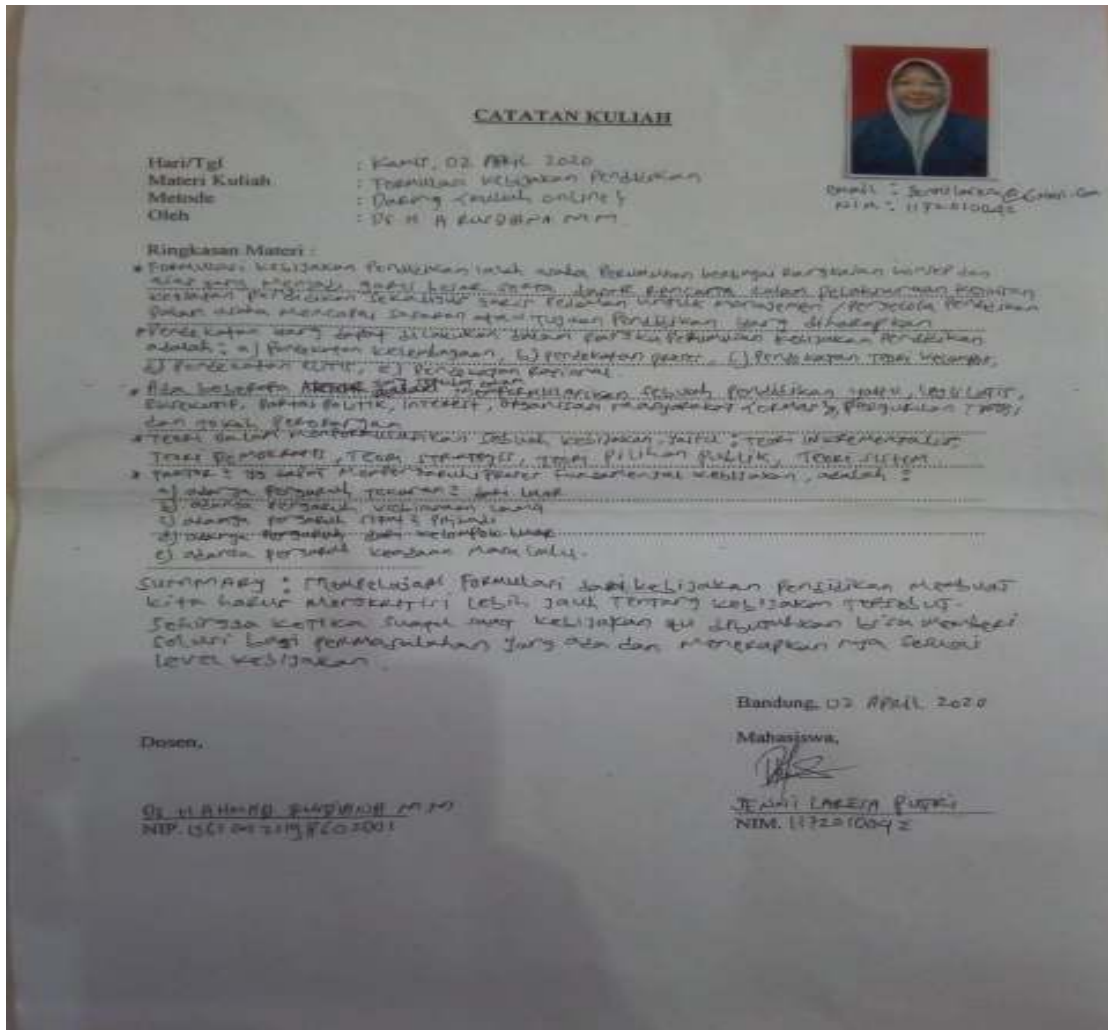 CATATAN KULIAH
Hari/Tgl : Kamis, 02 April 2020
Materi Kuliah : Formulasi Kebijakan Pendidikan
Metode : Daring (kuliah online)
Oleh : Dr H A Rusdiana M M
email :
NIM : 1172010042
Ringkasan Materi :
* Formulasi kebijakan Pendidikan ialah usaha Perumusan berbagai rangkaian konsep dan
asas yang menjadi garis besar suatu dasar rencana dalam pelaksanaan
kegiatan pendidikan sekaligus garis Pedoman untuk manajemen / Pengelola
dalam usaha mencapai sasaran atau Tujuan Pendidikan yang diharapkan
* Pendekatan yang dapat dilakukan dalam Perumusan kebijakan Pendidikan
adalah : a) pendekatan kelembagaan, b) pendekatan proses, c) Pendekatan Teori kelompok,
d) Pendekatan elitis, e) Pendekatan Rasional
* Ada beberapa sebuah pendidikan yaitu, legislatif,
Eksekutif, Partai Politik, interest, organisasi masyarakat (ormas), Perguruan Tinggi,
dan tokoh Perorangan
* Teori dalam sebuah kebijakan, yaitu : Teori inkrementalis,
Teori Demokratis, Teori strategis, Teori Pilihan Publik, Teori sistem
* Faktor 2 yg dapat Mempengaruhi Proses kebijakan, adalah :
a) adanya pengaruh tekanan 2 dari luar
b) adanya pengaruh kebiasaan lama
c) adanya pengaruh sifat 2 Pribadi
d) adanya pengaruh dari kelompok luar
e) adanya pengaruh keadaan masa lalu.
SUMMARY : Mempelajari Formulasi dari kebijakan Pendidikan Membuat
kita harus lebih jauh tentang kebijakan tersebut.
Sehingga ketika suatu saat kebijakan itu dibutuhkan bisa memberi
solusi bagi permasalahan yang ada dan menerapkan nya sesuai
level kebijakan.
Bandung, 02 APRIL 2020
Dosen,
Mahasiswa,
Dr H AHMAD RUSDIANA M M
JENNI LARESA PUTRI
NIP.
NIM. 1172010042